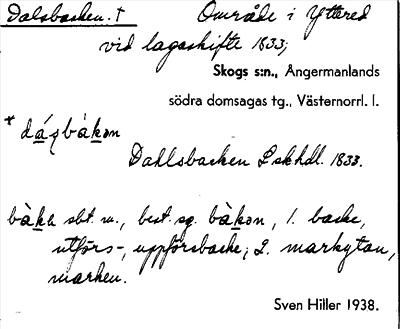 Dalsbacken. † Område i Yttered
vid lagaskifte 1833;
Skogs s:n., Ångermanlands
södra domsagas tg., Västernorrl. l.
* dázbàkən
Dahlsbacken Lskhdl. 1833.
bàka sbt. m., best. sg. bàkən, 1. backe,
utförs-, uppförsbacke; 2. markytan,
marken.
Sven Hiller 1938.